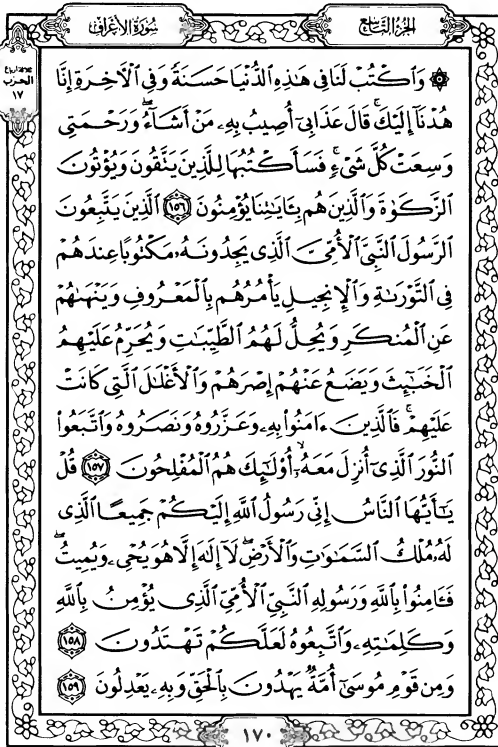 سُورَةُ الأَعْرَافِ
الجُزْءُ التَّاسِعُ
الحزب
١٧
۞ وَٱكْتُبْ لَنَا فِى هَٰذِهِ ٱلدُّنْيَا حَسَنَةً وَفِى ٱلْآخِرَةِ إِنَّا
هُدْنَآ إِلَيْكَ ۚ قَالَ عَذَابِىٓ أُصِيبُ بِهِۦ مَنْ أَشَآءُ ۖ وَرَحْمَتِى
وَسِعَتْ كُلَّ شَىْءٍ ۚ فَسَأَكْتُبُهَا لِلَّذِينَ يَتَّقُونَ وَيُؤْتُونَ
ٱلزَّكَوٰةَ وَٱلَّذِينَ هُم بِـَٔايَٰتِنَا يُؤْمِنُونَ ١٥٦ ٱلَّذِينَ يَتَّبِعُونَ
ٱلرَّسُولَ ٱلنَّبِىَّ ٱلْأُمِّىَّ ٱلَّذِى يَجِدُونَهُۥ مَكْتُوبًا عِندَهُمْ
فِى ٱلتَّوْرَىٰةِ وَٱلْإِنجِيلِ يَأْمُرُهُم بِٱلْمَعْرُوفِ وَيَنْهَىٰهُمْ
عَنِ ٱلْمُنكَرِ وَيُحِلُّ لَهُمُ ٱلطَّيِّبَٰتِ وَيُحَرِّمُ عَلَيْهِمُ
ٱلْخَبَٰٓئِثَ وَيَضَعُ عَنْهُمْ إِصْرَهُمْ وَٱلْأَغْلَٰلَ ٱلَّتِى كَانَتْ
عَلَيْهِمْ ۚ فَٱلَّذِينَ ءَامَنُوا۟ بِهِۦ وَعَزَّرُوهُ وَنَصَرُوهُ وَٱتَّبَعُوا۟
ٱلنُّورَ ٱلَّذِىٓ أُنزِلَ مَعَهُۥٓ ۙ أُو۟لَٰٓئِكَ هُمُ ٱلْمُفْلِحُونَ ١٥٧ قُلْ
يَٰٓأَيُّهَا ٱلنَّاسُ إِنِّى رَسُولُ ٱللَّهِ إِلَيْكُمْ جَمِيعًا ٱلَّذِى
لَهُۥ مُلْكُ ٱلسَّمَٰوَٰتِ وَٱلْأَرْضِ ۖ لَآ إِلَٰهَ إِلَّا هُوَ يُحْىِۦ وَيُمِيتُ ۖ
فَـَٔامِنُوا۟ بِٱللَّهِ وَرَسُولِهِ ٱلنَّبِىِّ ٱلْأُمِّىِّ ٱلَّذِى يُؤْمِنُ بِٱللَّهِ
وَكَلِمَٰتِهِۦ وَٱتَّبِعُوهُ لَعَلَّكُمْ تَهْتَدُونَ ١٥٨
وَمِن قَوْمِ مُوسَىٰٓ أُمَّةٌ يَهْدُونَ بِٱلْحَقِّ وَبِهِۦ يَعْدِلُونَ ١٥٩
١٧٠